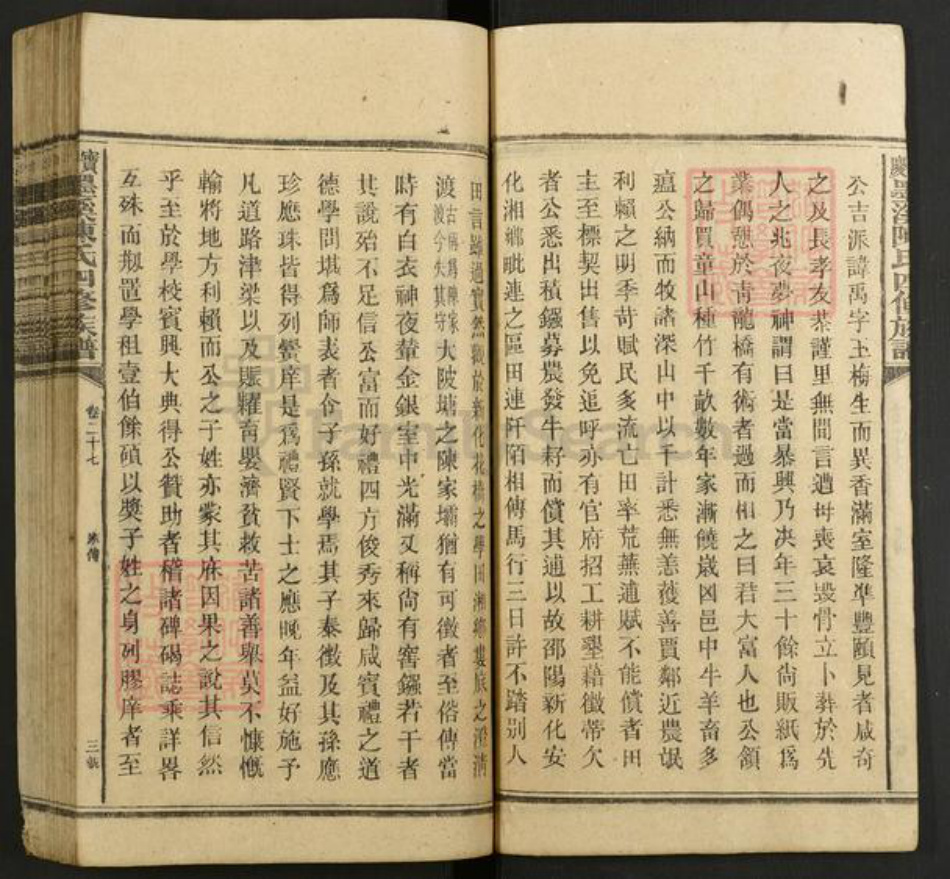 公吉派諱禹字玉梅生而異香滿室隆準豐頤見者咸奇
之及長孝友恭謹里無間言遭母喪哀毀骨立卜葬於先
人之兆夜夢神謂曰是當暴興乃決年三十餘尙販紙爲
業偶憩於靑龍橋有術者過而相之曰君大富人也公頷
之歸買童山種竹千畝數年家漸饒歲凶邑中牛羊畜多
瘟公納而牧諸深山中以千計悉無恙獲善賈鄰近農氓
利賴之明季苛賦民多流亡田率荒蕪逋賦不能償者田
主至標契出售以免追呼亦有官府招工耕墾藉徵蒂欠
者公悉出積鏹募農發牛耔而償其逋以故邵陽新化安
化湘鄉毗連之區田連阡陌相傳馬行三日許不踏別人
田言雖過實然徵於新化花橋之學田湘鄉婁底之澄清
渡古稱爲陳家渡今失其守大陂塘之陳家壩猶有可徵者至俗傳當
時有白衣神夜輦金銀室中光滿又稱尙有窖鏹若干者
其說殆不足信公富而好禮四方俊秀來歸咸賓禮之道
德學問堪爲師表者令子孫就學焉其子泰徵及其孫應
珍應珠皆得列黌庠是爲禮賢下士之應晚年益好施予
凡道路津梁以及賑糶育嬰濟貧救苦諸善舉莫不慷慨
輸將地方利賴而公之子姓亦蒙其庥因果之說其信然
乎至於學校賓興大典得公贊助者稽諸碑碣誌乘詳畧
互殊而剏置學租壹伯餘碩以獎子姓之身列膠庠者至
墨溪陳氏四修族譜
卷二十七
三